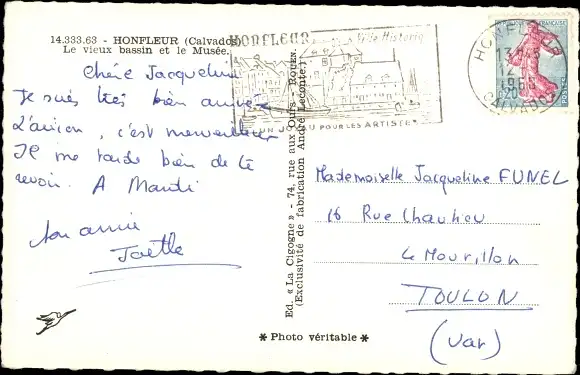 14.333.63 - HONFLEUR (Calvados)
Le vieux bassin et le Musée.
HONFLEUR
Ville Historiq
POUR LES ARTISTES
HONFLEUR
13 H
12
1960
CALVADOS
FRANÇAISE
POSTES
0,20
Chérie Jacqueline
Je suis très bien arrivée
L'avion, c'est merveilleux
Il me tarde bien de te
revoir. A Mardi
ton amie
Joëlle
Ed. « La Cigogne » - 74, rue aux Ours - ROUEN.
(Exclusivité de fabrication André Leconte.)
Mademoiselle Jacqueline FUNEL
16 Rue Chaulieu
Le Mourillon
TOULON
(Var)
* Photo véritable *